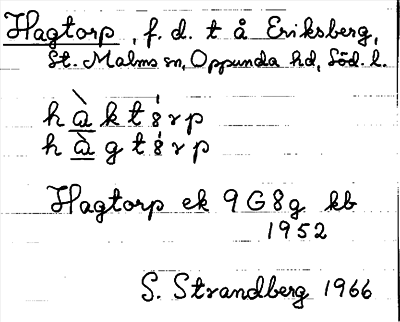 Hagtorp, f. d. t å Eriksberg,
St. Malms sn, Oppunda hd, Söd. l.
hàktȯrp
hàgtȯrp
Hagtorp ek 9G8g kb
1952
S. Strandberg 1966